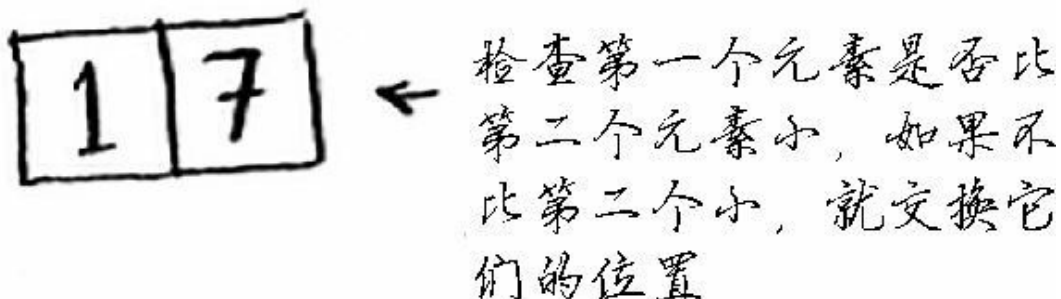 1 7 ← 检查第一个元素是否比
第二个元素小，如果不
比第二个小，就交换它
们的位置